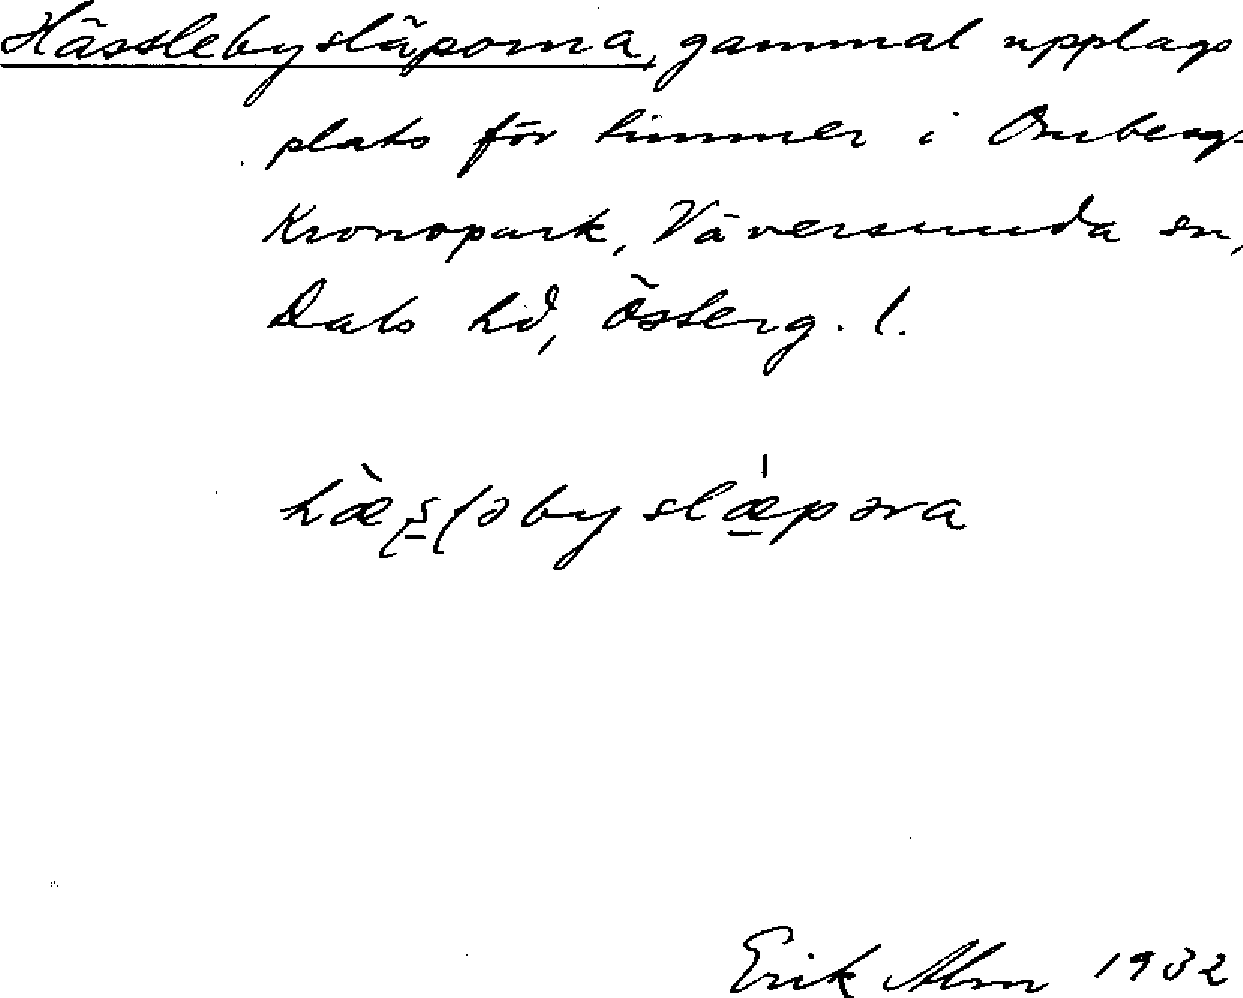 Hässlebysläporna, gammal upplags
plats för timmer i Omberg-
Kronopark, Väversunda sn,
Dals hd, Österg. l.
by slæ̀pəra
Erik Alm 1932